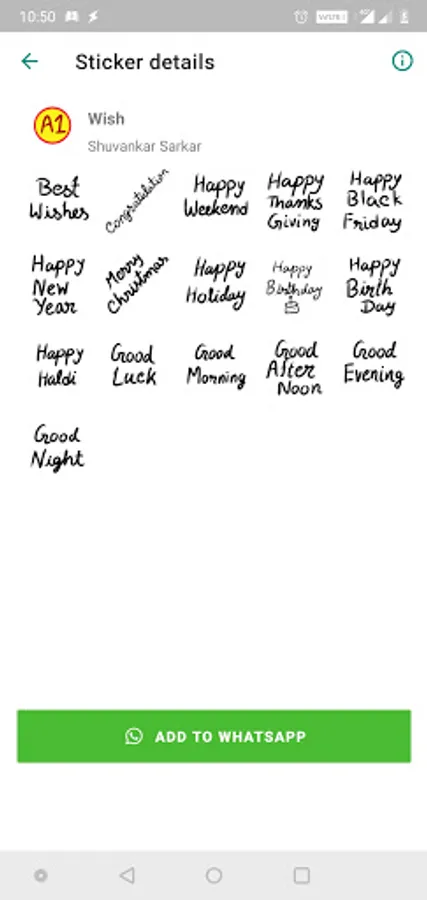 10:50
Sticker details
A1
Wish
Shuvankar Sarkar
Best
Wishes
Congratulation
Happy
Weekend
Happy
Thanks
Giving
Happy
Black
Friday
Happy
New
Year
Merry
Christmas
Happy
Holiday
Happy
Birthday
Happy
Birth
Day
Happy
Haldi
Good
Luck
Good
Morning
Good
After
Noon
Good
Evening
Good
Night
ADD TO WHATSAPP